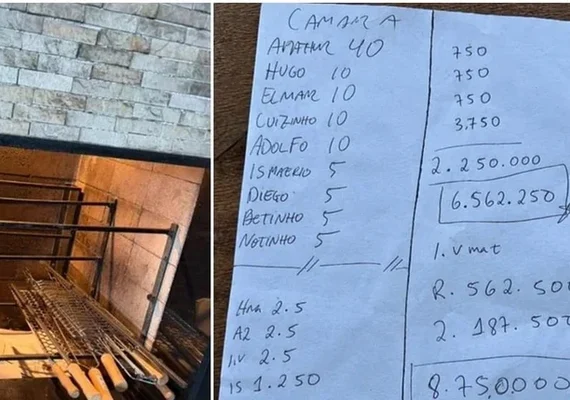 CAMARA
ARTHUR 40
HUGO 10
ELMAR 10
LUIZINHO 10
ADOLFO 10
5
DIEGO 5
BETINHO 5
NETINHO 5
2.5
A2 2.5
1.V 2.5
IS 1.250
750
750
750
3.750
2.250.000
6.562.250
1.V mat
R. 562.500
2.187.500
8.750.000